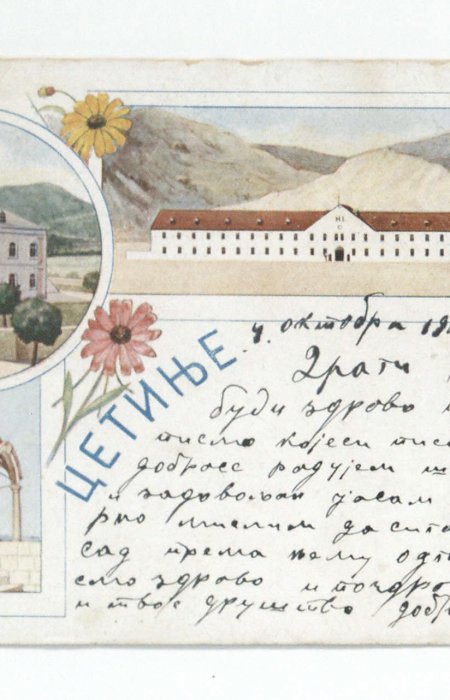 Н I.
ЦЕТИЊЕ.
4. октобра 19
Драги
буди здраво
писмо којеси писа
добросе радујем ш
и задовољан јасам
рно мислим да си
сад према њему одг
смо здраво и поздра
и твоје друштво добр